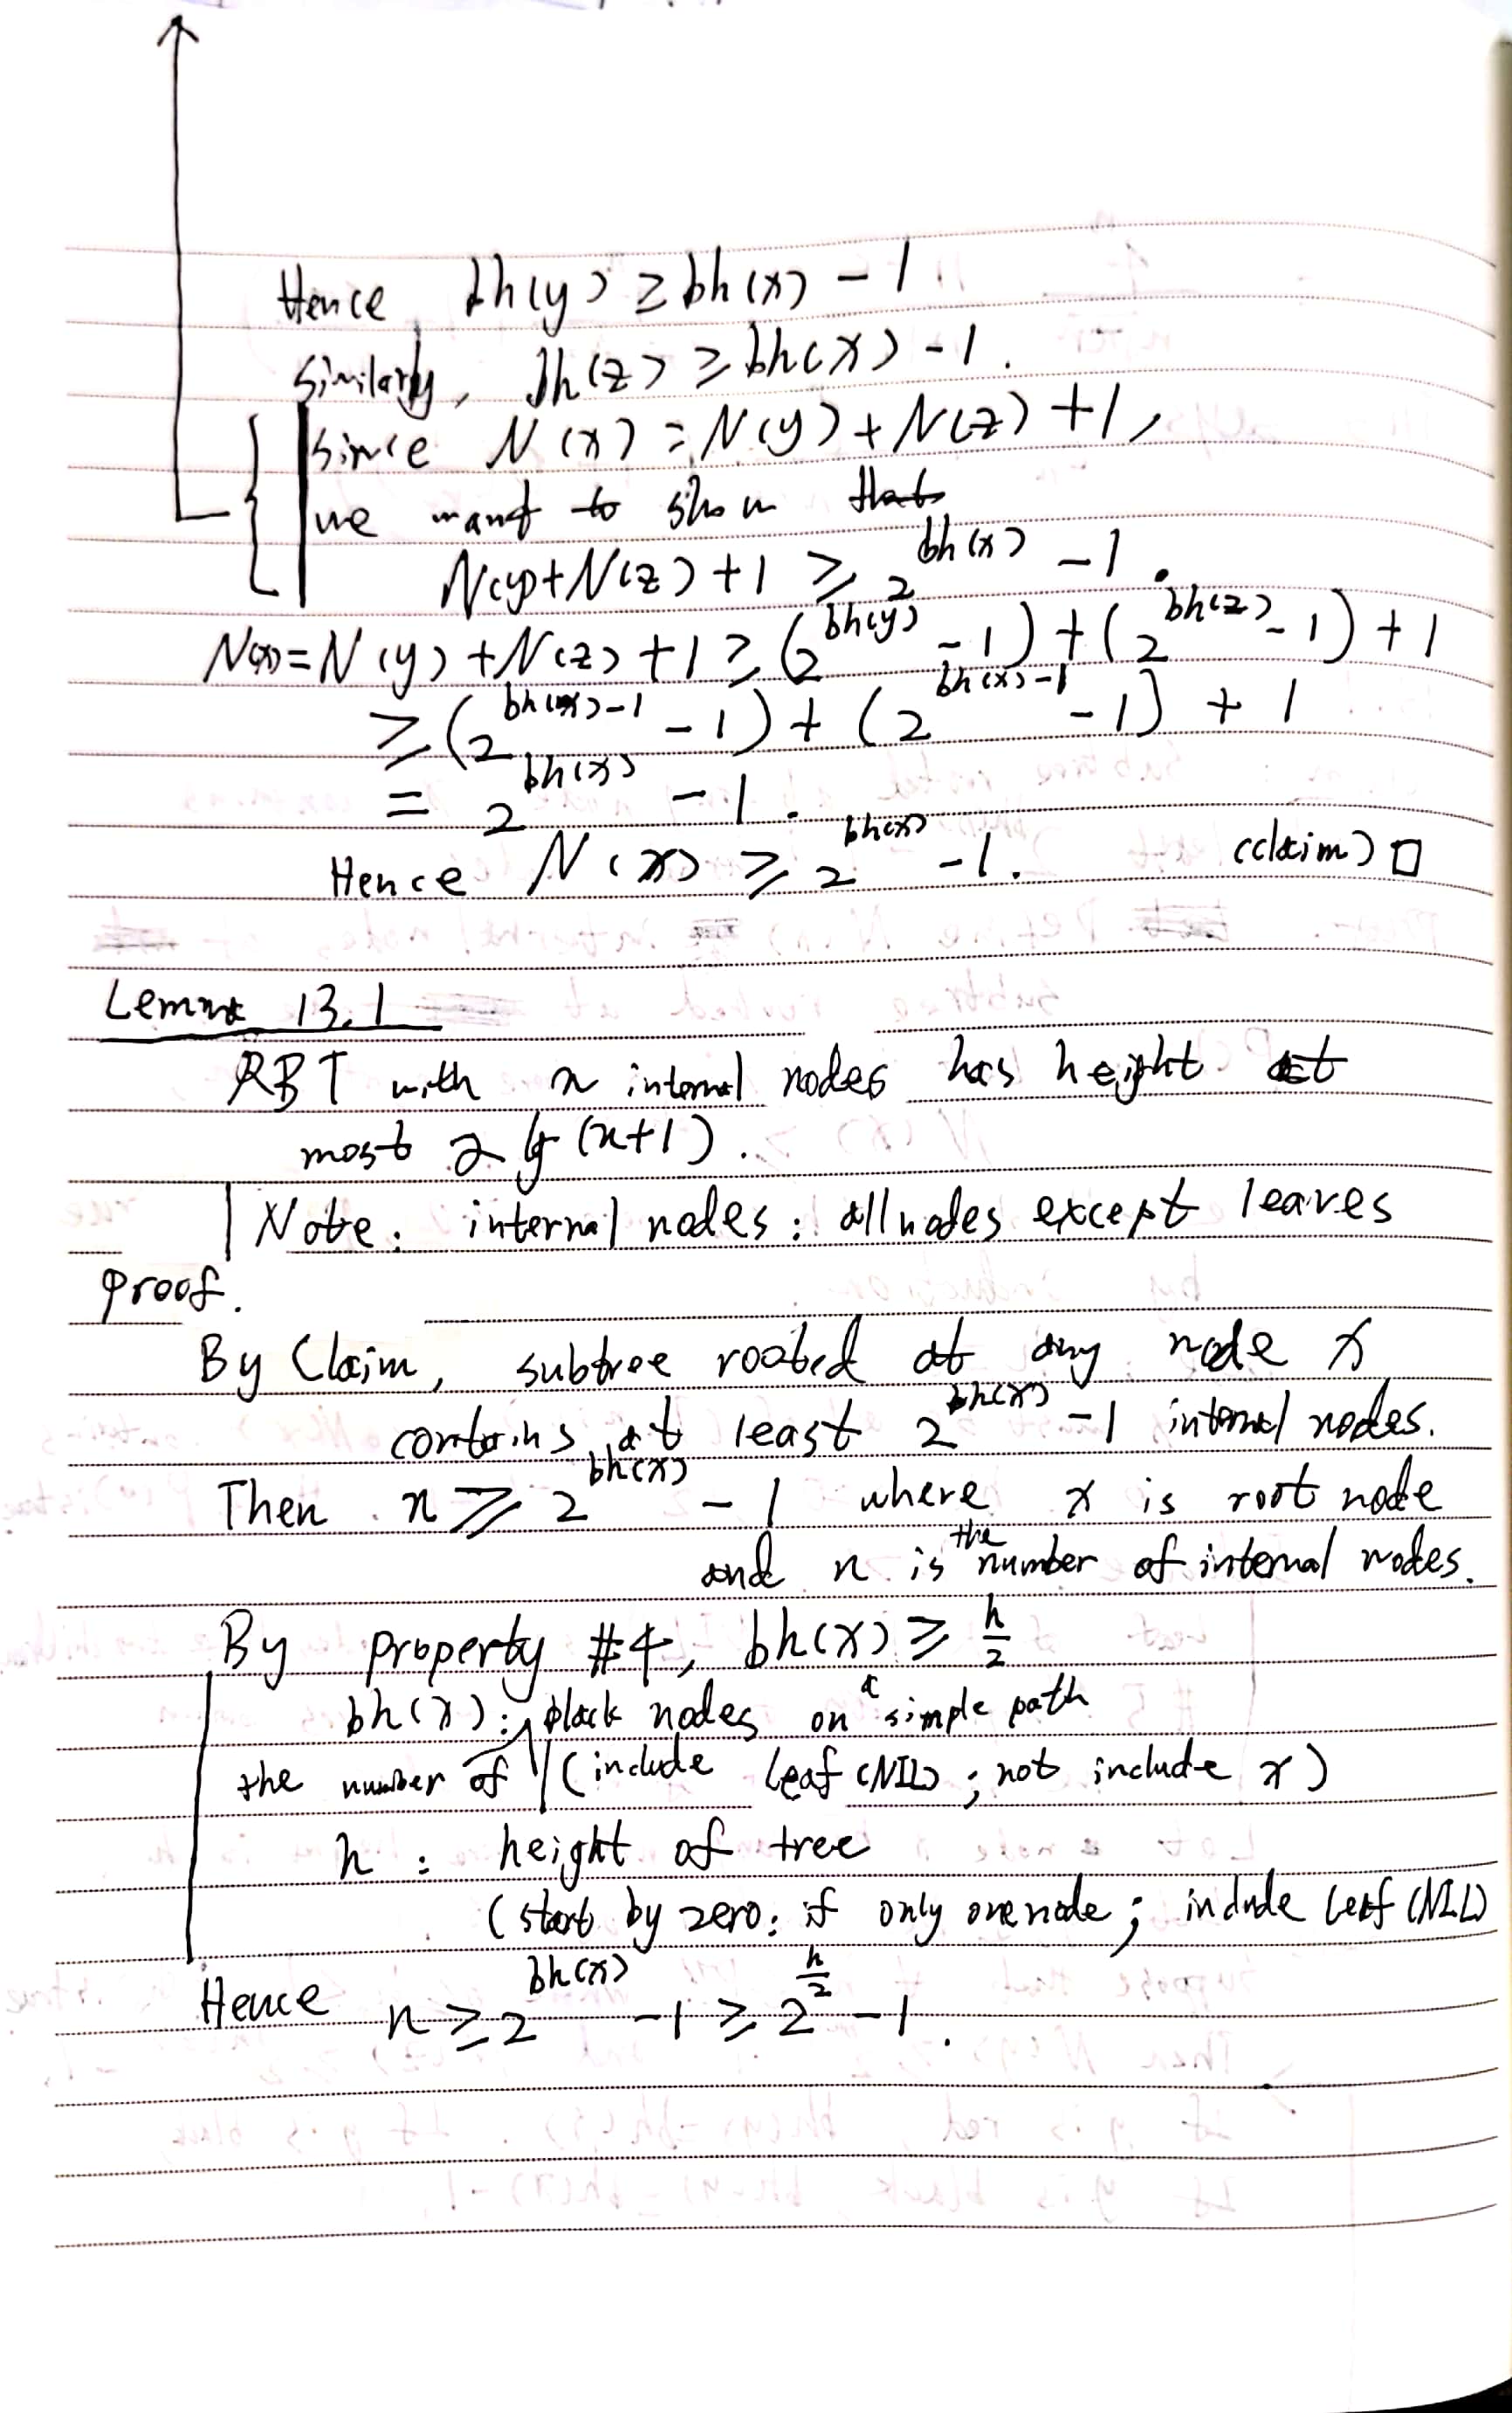 Hence, bh(y) ≥ bh(x) - 1
Similarly, bh(z) ≥ bh(x) - 1.
Since N(x) = N(y) + N(z) + 1,
we want to show that
N(y) + N(z) + 1 ≥ 2^{bh(x)} - 1.
N(x) = N(y) + N(z) + 1 ≥ (2^{bh(y)} - 1) + (2^{bh(z)} - 1) + 1
≥ (2^{bh(x)-1} - 1) + (2^{bh(x)-1} - 1) + 1
= 2^{bh(x)} - 1.
Hence N(x) ≥ 2^{bh(x)} - 1. (claim) □
Lemma 13.1
RBT with n internal nodes has height at
most 2 lg (n+1).
Note: internal nodes: all nodes except leaves
Proof.
By Claim, subtree rooted at any node x
contains at least 2^{bh(x)} - 1 internal nodes.
Then n ≥ 2^{bh(x)} - 1 where x is root node
and n is the number of internal nodes.
By property #4, bh(x) ≥ h/2
bh(x): the number of black nodes on a simple path
(include leaf (NIL); not include x)
h: height of tree
(start by zero: if only one node; include leaf (NIL)
Hence n ≥ 2^{bh(x)} - 1 ≥ 2^{h/2} - 1.